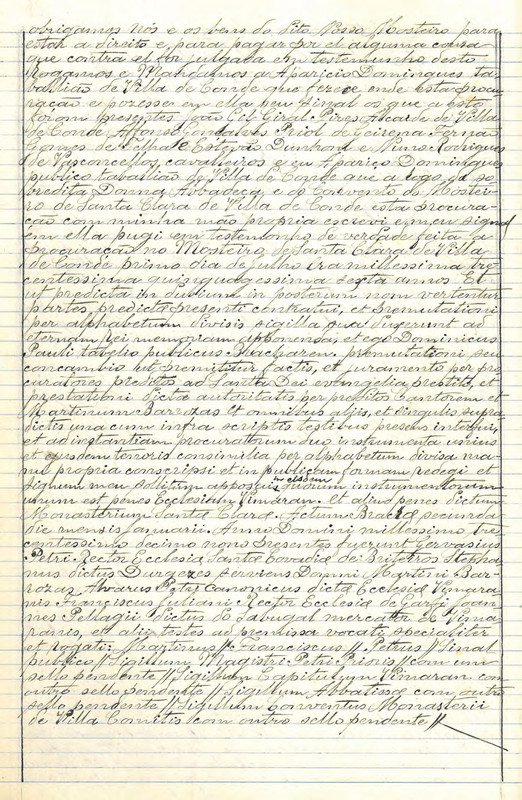 obrigamos nós e os bens do dito Nosso Mosteiro para
estar a direito e para pagar por el alguma cousa
que contra el for julgada em testemunho desto
Rogamos e Mandamos a Aparicio Domingues ta-
balliaõ de Villa de Conde que fezece ende esta procu-
raçaõ e pozesse em ella seu sinal os que a esto
foram presentes Joaõ Gil Giral Pires Alcaide de Villa
de Conde Affonso Gonçalves Priol de Geirena Fernaõ
Gomes de Filha e Estevaõ Dunhom e Nuno Rodrigues
de Vasconcellos, cavalleiros e eu Apariço Domingues
publico taballiaõ de Villa de Conde que a rogo da so-
bredita Donna Abbadeça e do Convento do Mostei-
ro de Santa Clara de Villa de Conde esta procura-
caõ com minha maõ propria escrevi e meu signal
em ella pugi em testemonho de verdade feita a
procuraçaõ no Mosteiro de Santa Clara de Villa
de Conde primo dia de julho Era millessima tre
centessima quinquagessima sexta annos Et
ut predicta in dubium in posterum non vertentur
partes predictæ presenti contratui, et premutationi
per alphabetum divisis sigilla sua duxerunt ad
eternam rei memoriam apponenda, et ego Dominicus
Pauli tabelio publicus Bracharen. premutationi seu
concambio ut premititur factis, et juramento per pro
curatores preditos ad Santa Dei evangelia prestito, et
prestationi dictæ autoritatis per preditos Cantorem et
Martinum Barrozas et omnibus aliis, et singulis supra
dictis una cum infra scriptis testibus presens interfui,
et ad instantiam procuratorum duo instrumenta unius
et ejusdem tenoris consimilia per alphabetum divisa ma-
nu propria conscripsi et in publicam formam redegi et
signum meu solitum apposui in eisdem quorum instrumentorum
unum est penes Ecclesiam Vimaran. et aliud penes dictum
Monasterium Santæ Claræ. Actum Bracaræ secunda
die mensis januarii. Anno Domini millessimo tre
centessimo decimo nono Presentes fuerunt Gervasius
Petri Rector Ecclesiæ Santæ Eovadiæ de Briteiros Stepha
nus dictus Durazes serviens Domni Martini Bar-
rozas Alvarus Petri canonicus dictæ Ecclesiæ Vimara
nis Franciscus Juliani Rector Ecclesiæ de Garfi Joan-
nes Pellagii dictus do Sabugal mercator et Vima
ranis, et alii testes ad premissa vocati specialiter
et rogati. Martinus // Franciscus // Petrus // Sinal
publico // Sigillum Magistri Petri Prioris // com um
sello pendente // Sigillum Capitulum Vimaran. com
outro sello pendente // Sigillum Abbatissæ com outro
sello pendente // Sigillum Conventus Monasterii
de Villa Comitis com outro sello pendente //